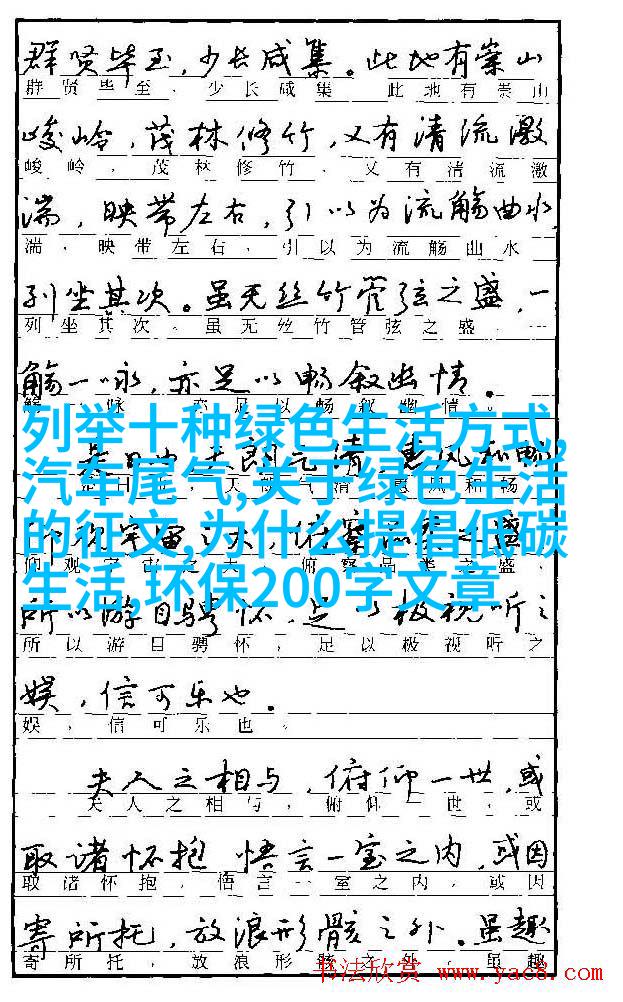 群贤毕至，少长咸集。此地有崇山
群贤毕至，少长咸集　此地有崇山
峻岭，茂林修竹，又有清流激
峻岭，茂林修竹，又有清流激
湍，映带左右，引以为流觞曲水
湍，映带左右，引以为流觞曲水
列坐其次。虽无丝竹管弦之盛，一
列坐其次。虽无丝竹管弦之盛，一
觞一咏，亦足以畅叙幽情。
咏　亦足以畅叙幽情。
列举十种绿色生活方式,
汽车尾气,关于绿色生活
的征文,为什么提倡低碳
生活,环保200字文章
天朗　清　惠风和畅
仰观宇宙之大，俯察品类之盛，
所以游目骋怀，足以极视听之
所以游目骋怀，足以极视听之
娱，信可乐也。
娱，信可乐也。
夫人之相与，俯仰一世，或
夫人之相与，俯仰一世，或
取诸怀抱　悟言一室之内，或因
取诸怀抱，悟言一室之内，或因
寄所托，放浪形骸之外。虽趣
寄所托，放浪形骸之外。虽趣
书法欣赏 www.yac8.com